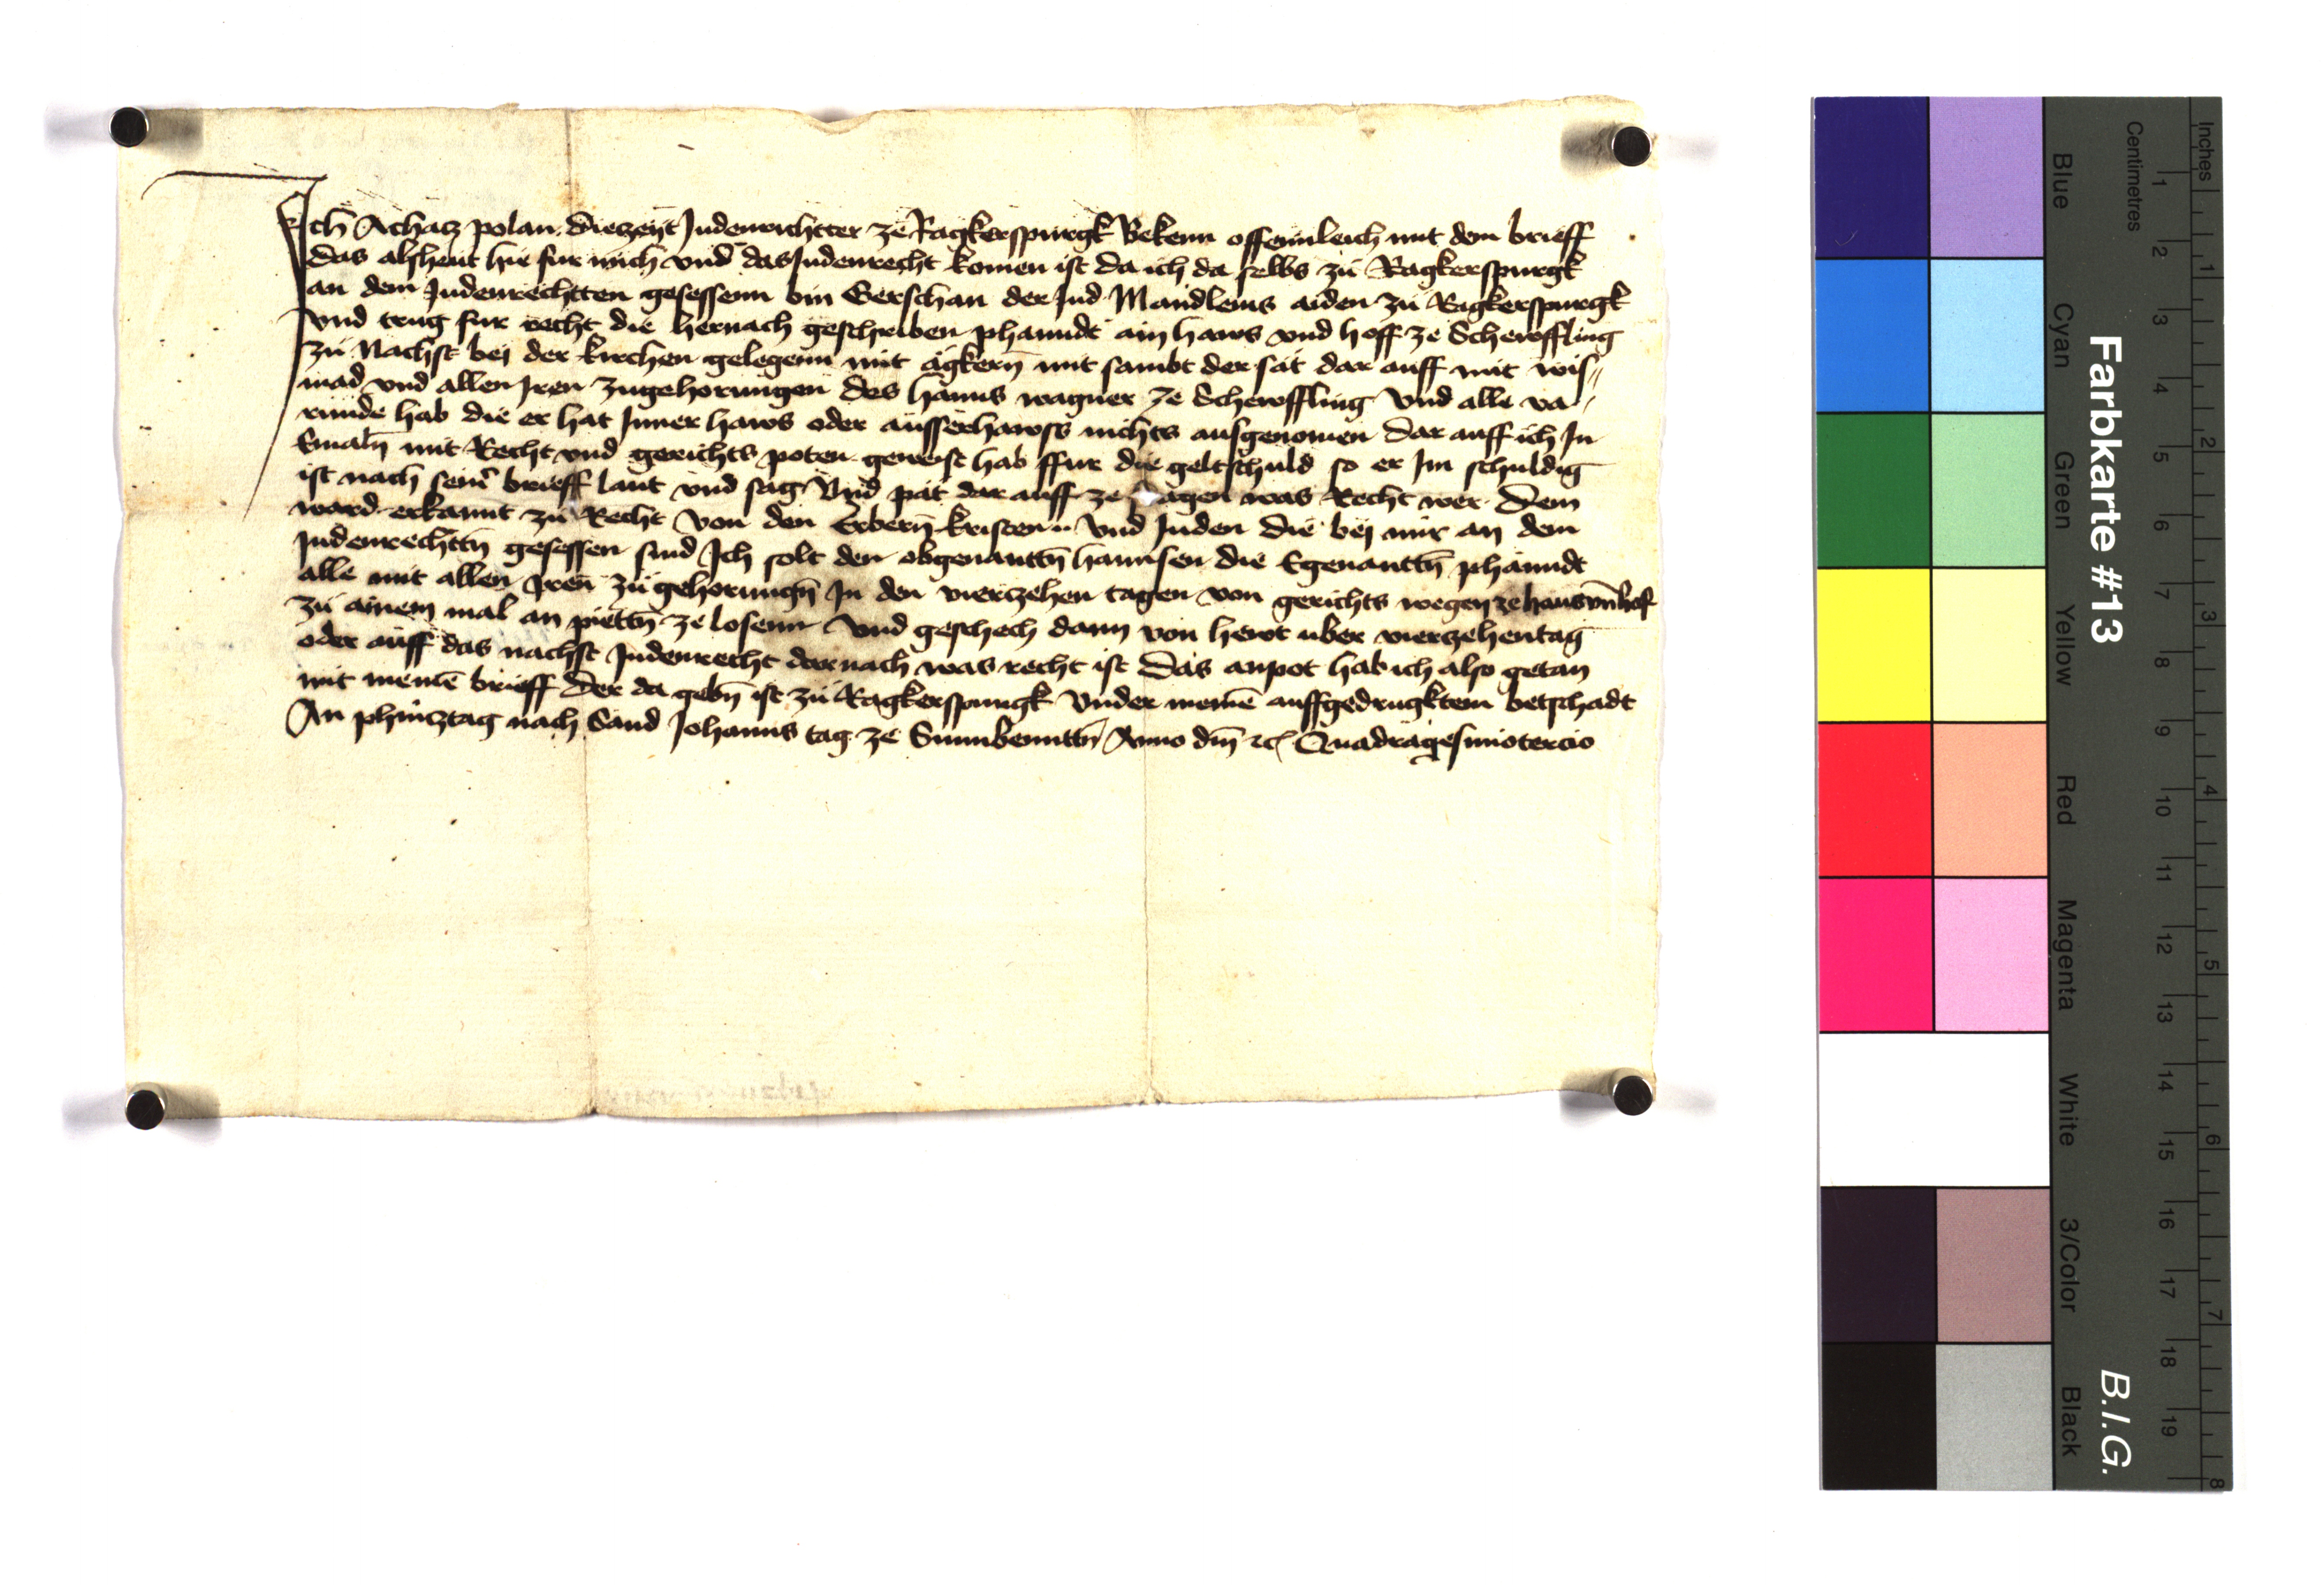 Ich Achacz polan diezeyt Judenrichtter ze Ragkerspurgk Bekenn offennleich mit dem brieff
das alsheut hie fur mich vnd das Judenrecht komen ist da ich da selbs zu Ragkerspurgk
an dem Judenrechtten gesessenn bin Gerschan der Jud Mandleins aiden zu Ragkerspurgk
vnd trug fur recht die hernach geschriben phanndt ain haws vnd hoff ze Scheroffling
zu Nachst bei der kirchen gelegenn mit agkern̄ mit sambt der sat dar auff mit wis〃
mad vnd allen Jren zugehorungen des hanns wagner ze Scheroffling vnd alle va〃
runde hab die er hat Inner haws oder ausserhawss nichts ausgenomen dar auff ich In
Emaln̄ mit Recht vnd gerichts poten geweist hab ffur die geltschuld so er Im schuldig
ist nach seinr brieff laut vnd sag Vnd pat dar auff ze agen was Recht wer Dem
ward erkannt zu Recht von den Erbern̄ kristen vnd Juden die bej mir an dem
Judenrechttn̄ gesessen sind Ich solt den obgenanttn̄ hannsen die Egenanttn̄ phanndt
alle mit allen Jren zu gehorungn̄ In den vierczehen tagen von gerichts wegen ze haus vn̄ hof
zu ainem mal an piettn̄ ze losenn vnd geschech dann von hewt uber vierzehentag
oder auff das nachst Judenrecht dar nach was recht ist Das anpot hab ich also getan
mit meinē brieff Der da gebn̄ ist zu Ragkerspurgk Vnder meinē auffgedrugktem betschadt
An phincztag nach Sand Johanns tag ze Sunnbenttn̄ Anno dm̄ etc Quadragesimotercio
Farbkarte #13
B.I.G.
Inches
Centimetres
1 2 3 4 5 6 7 8 9 10 11 12 13 14 15 16 17 18 19
1 2 3 4 5 6 7 8
Blue Cyan Green Yellow Red Magenta White 3/Color Black